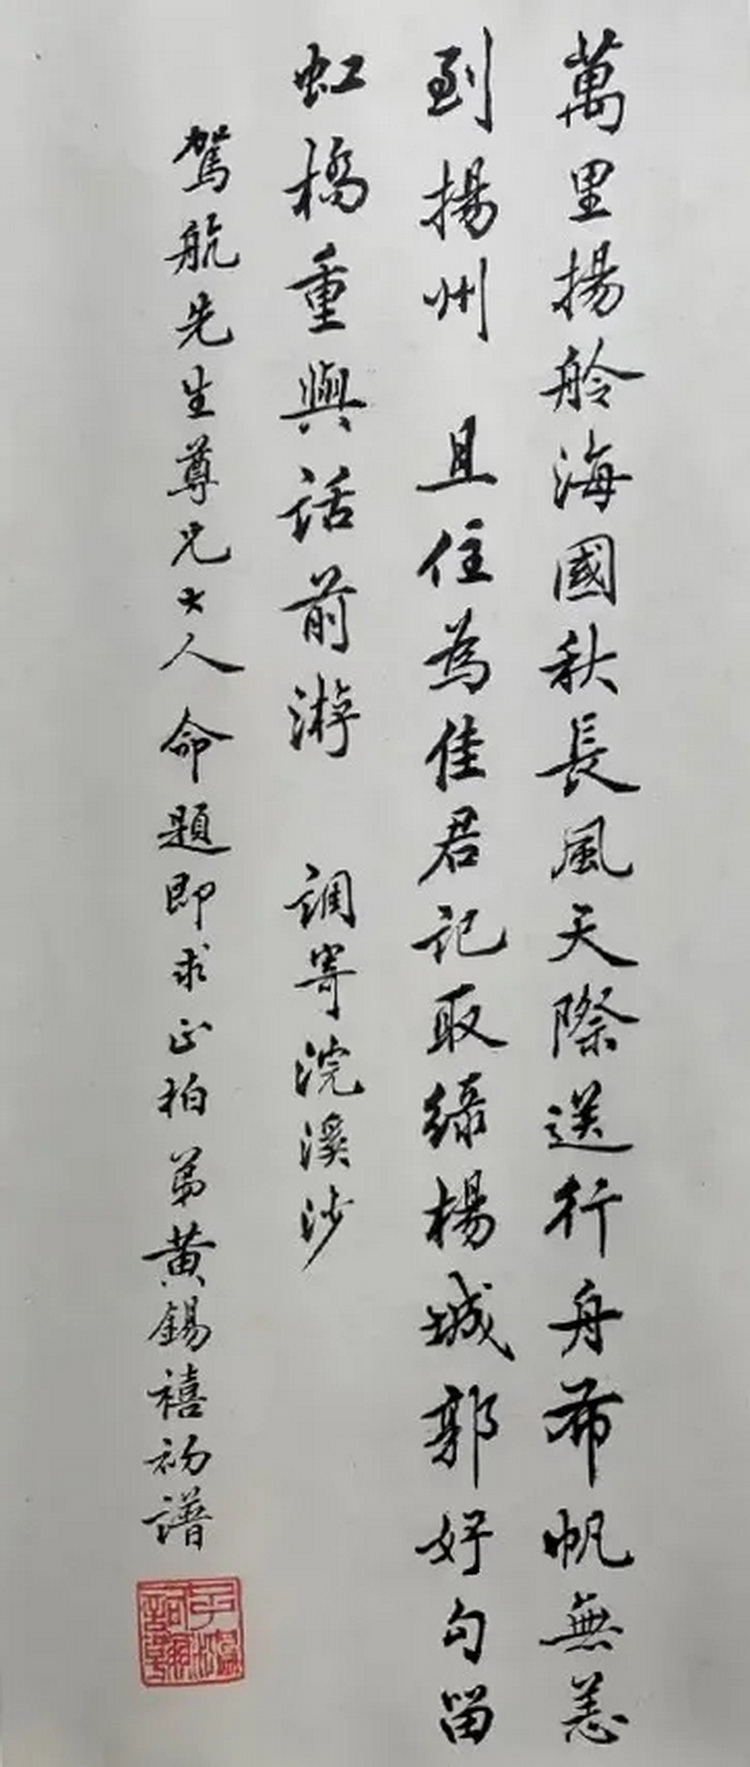 萬里揚舲海國秋長風天際送行舟布帆無恙
到揚州　且住為佳君記取綠楊城郭好句留
虹橋重與話前游　調寄浣溪沙
駕航先生尊兄大人命題即求正拍弟黃錫禧初譜